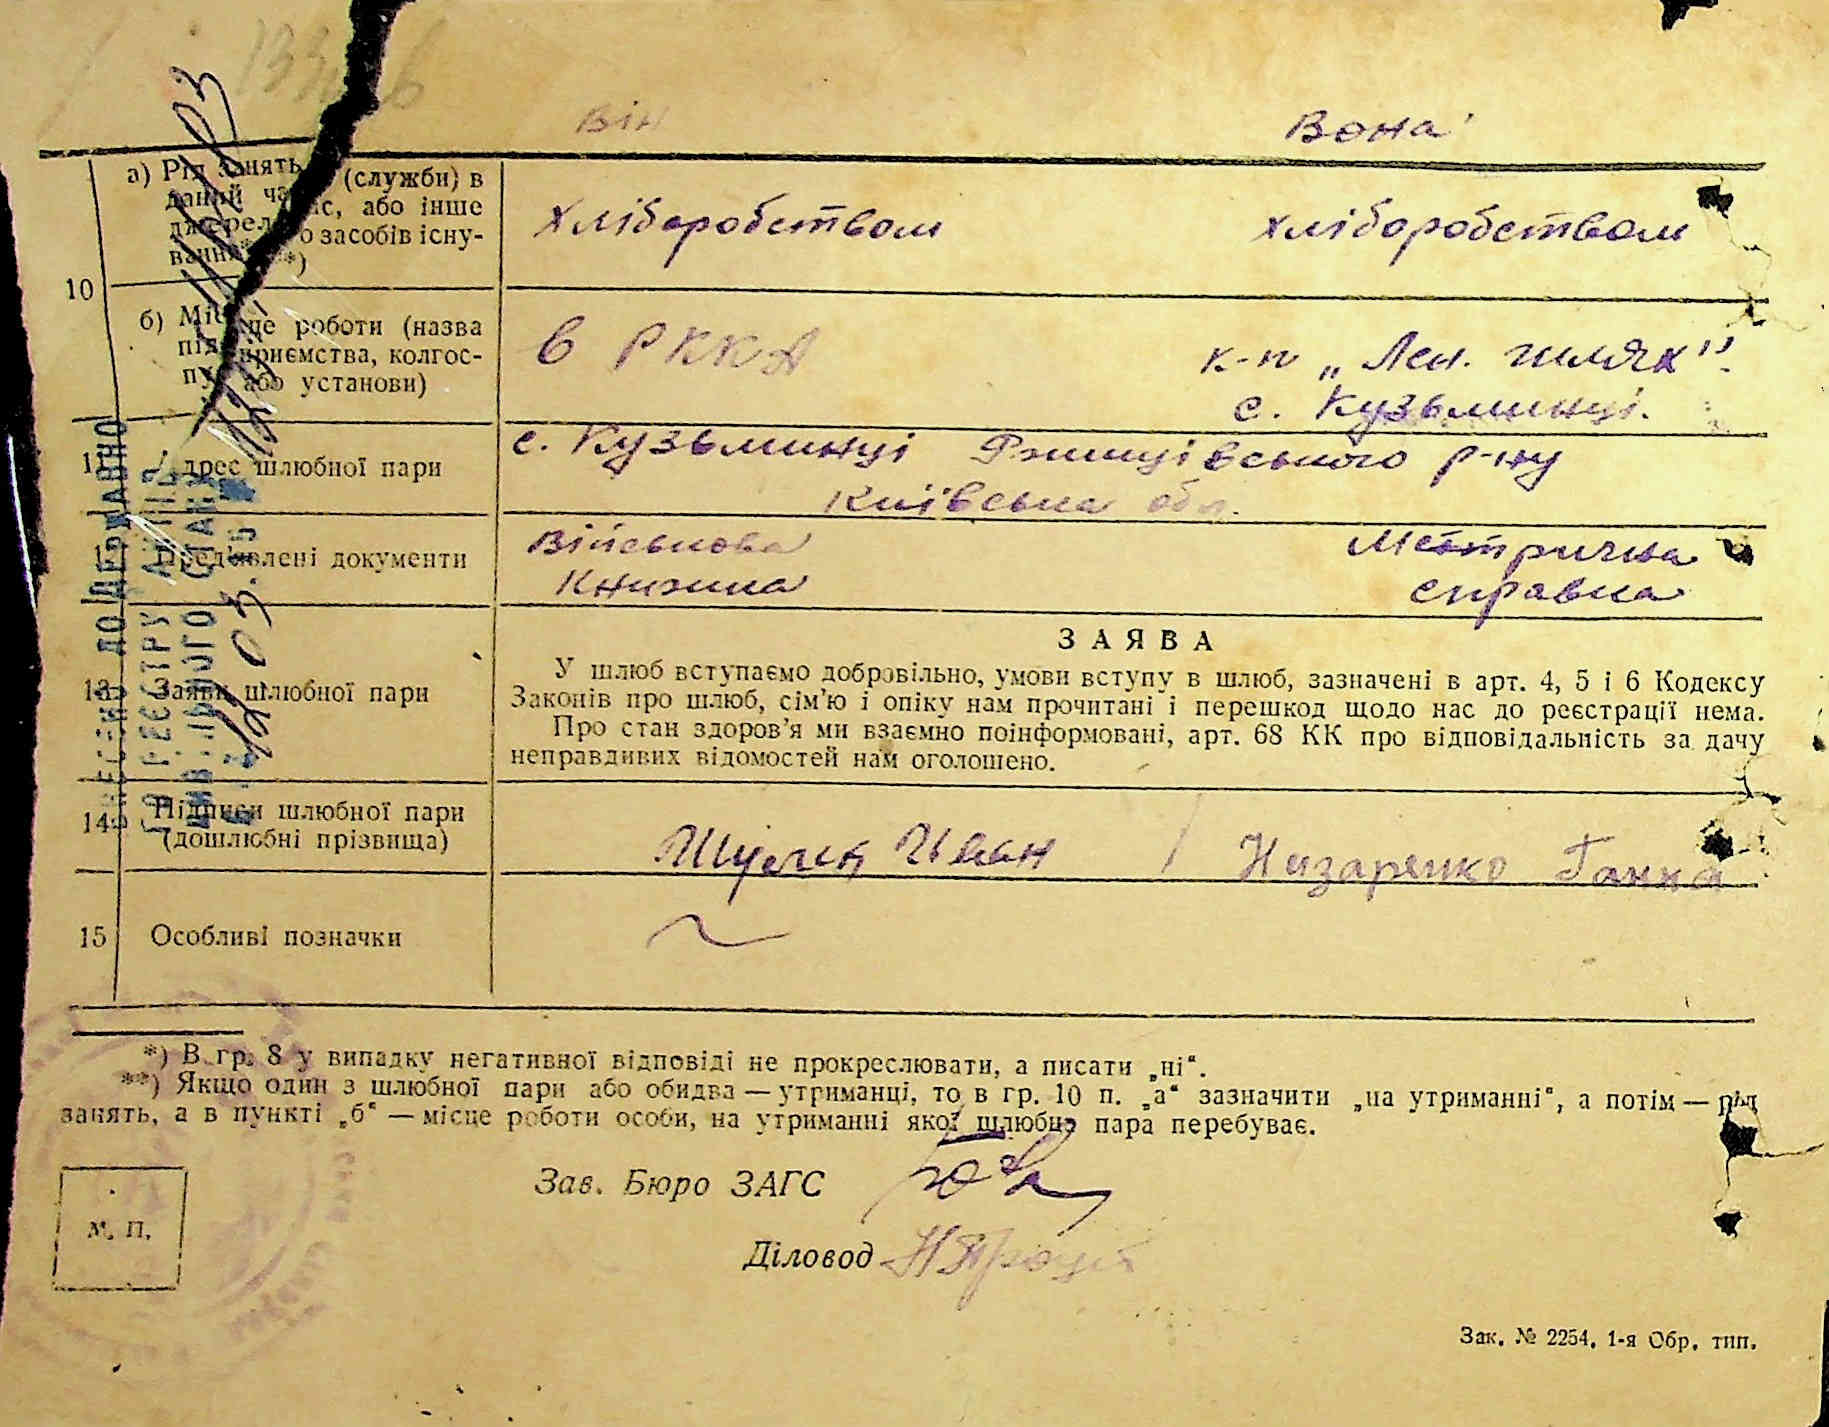 він
вона
10
а) Рід занять (служби) в
даний час, або інше
джерело засобів існу-
вання**)
хліборобством
хліборобством
б) Місце роботи (назва
підприємства, колгос-
пу або установи)
в РККА
к-п „Лен. шлях"
с. Кузьминці.
11
Адрес шлюбної пари
с. Кузьминці Ржищівського р-ну
Київська обл.
Пред'явлені документи
Військова
книжка
Метрична
справка
13
Заява шлюбної пари
ЗАЯВА
У шлюб вступаємо добровільно, умови вступу в шлюб, зазначені в арт. 4, 5 і 6 Кодексу
Законів про шлюб, сім'ю і опіку нам прочитані і перешкод щодо нас до реєстрації нема.
Про стан здоров'я ми взаємно поінформовані, арт. 68 КК про відповідальність за дачу
неправдивих відомостей нам оголошено.
14
Підписи шлюбної пари
(дошлюбні прізвища)
Иван / Назаренко Ганна
15
Особливі позначки
ВНЕСЕНО ДО ДЕРЖАВНОГО
РЕЄСТРУ АКТІВ
ЦИВІЛЬНОГО СТАНУ
*) В гр. 8 у випадку негативної відповіді не прокреслювати, а писати „ні“.
**) Якщо один з шлюбної пари або обидва — утриманці, то в гр. 10 п. „а“ зазначити „на утриманні“, а потім — рід
занять, а в пункті „б“ — місце роботи особи, на утриманні якої шлюбна пара перебуває.
Зав. Бюро ЗАГС
М. П.
Діловод
Зак. № 2254, 1-я Обр. тип.